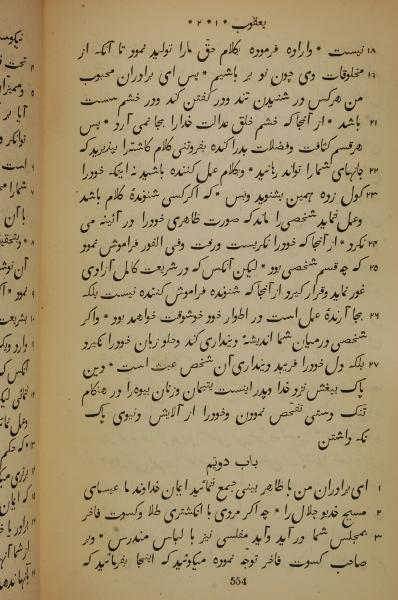 یعقوب * ۱ * ۲ *
۱۸ نیست * واراده فرموده بکلام حق مارا تولید نمود تا آنکه از
۱۹ مخلوقات وی چون نو بر باشیم * پس ای برادران محبوب
من هرکس در شنیدن تند ودر کفتن کند ودر خشم سست
۲۱ باشد * از آنجا که خشم خلق عدالت خدارا بجا نمی آرد * پس
هرقسم کثافت وفضلات بدرا کنده بفروتنی کلام کاشته را بپذیرید که
۲۲ جانهای شمارا تواند رهانید * وبکلام عمل کننده باشید نه اینکه خودرا
۲۳ کول زده همین بشنوید وبس * که اکر کسی شنونده کلام باشد
وعمل ننماید شخصی را ماند که صورت ظاهری خودرا در آئینه می
۲۴ نکرد * از آنجا که خودرا نکریست ورفت وفی الفور فراموش نمود
۲۵ که چه قسم شخصی بود * لیکن آنکس که در شریعت کامل آزادی
غور نماید وقرار کیرد از آنجا که شنونده فراموش کننده نیست بلکه
۲۶ بجا آرندهٔ عمل است در اطوار خود خوشوقت خواهد بود * واکر
شخصی درمیان شما اندیشه دینداری کند وجلو زبان خودرا نکیرد
۲۷ بلکه دل خودرا فریبد دینداری آن شخص عبث است * ودین
پاک بیغش نزد خدا وپدر اینست یتیمان وزنان بیوه را در هنکام
تنک دستی تفحص نمودن وخودرا از آلایش دنیوی پاک
نکه داشتن
باب دویم
۱ ای برادران من با ظاهر بینی جمع ننمائید ایمان خداوند ما عیسای
۲ مسیح خدیو جلال را * چه اکر مردی با انکشتری طلا وکسوت فاخر
۳ بمجلس شما در آید وآید مفلسی نیز با لباس مندرس * وبر
صاحب کسوت فاخر توجه نموده میکوئید که اینجا بفرمائید که
554